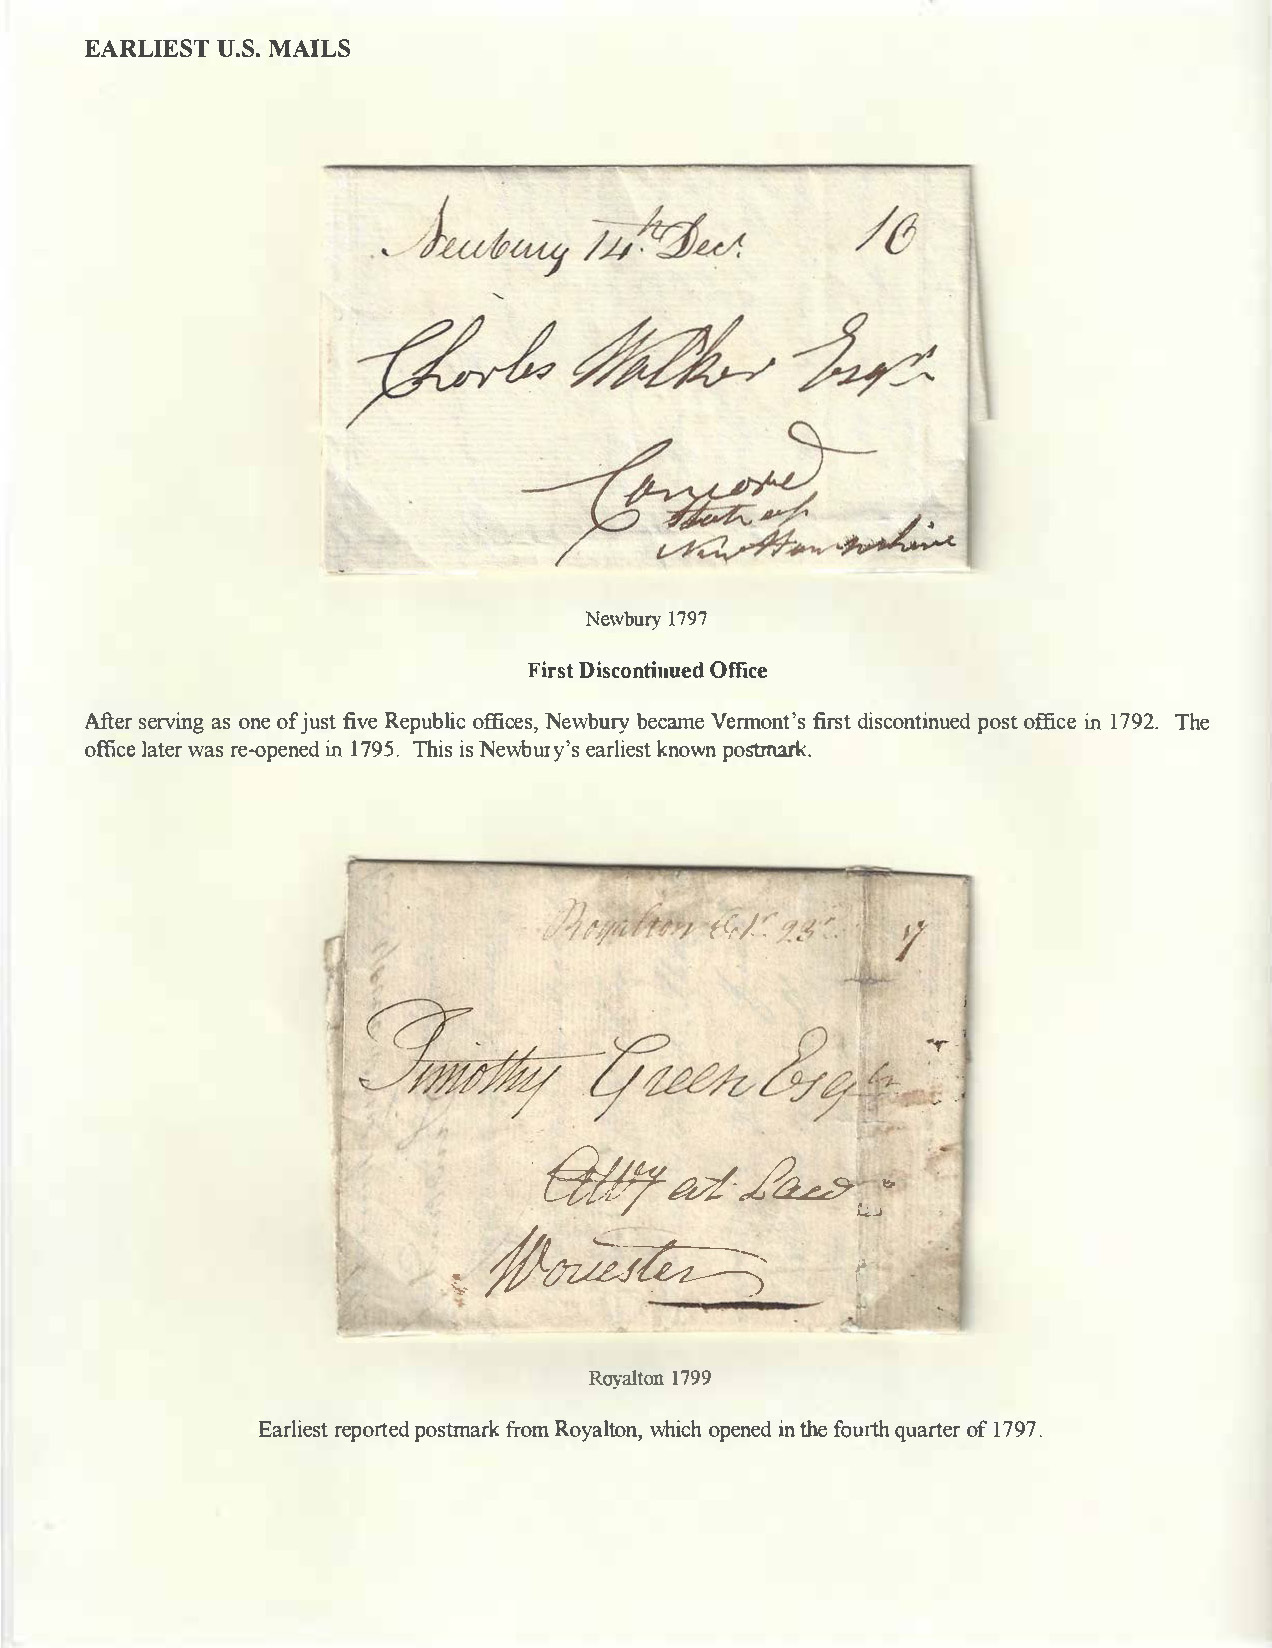 EARLIEST U.S. MAILS
Newbury 14th Decr. 10
Charles Walker Esqr
Concord
State of
New Hampshire
Newbury 1797
First Discontinued Office
After serving as one of just five Republic offices, Newbury became Vermont's first discontinued post office in 1792. The
office later was re-opened in 1795. This is Newbury's earliest known postmark.
Royalton 23d 17
Timothy Green Esqr
Atty at Law
Worcester
Royalton 1799
Earliest reported postmark from Royalton, which opened in the fourth quarter of 1797.